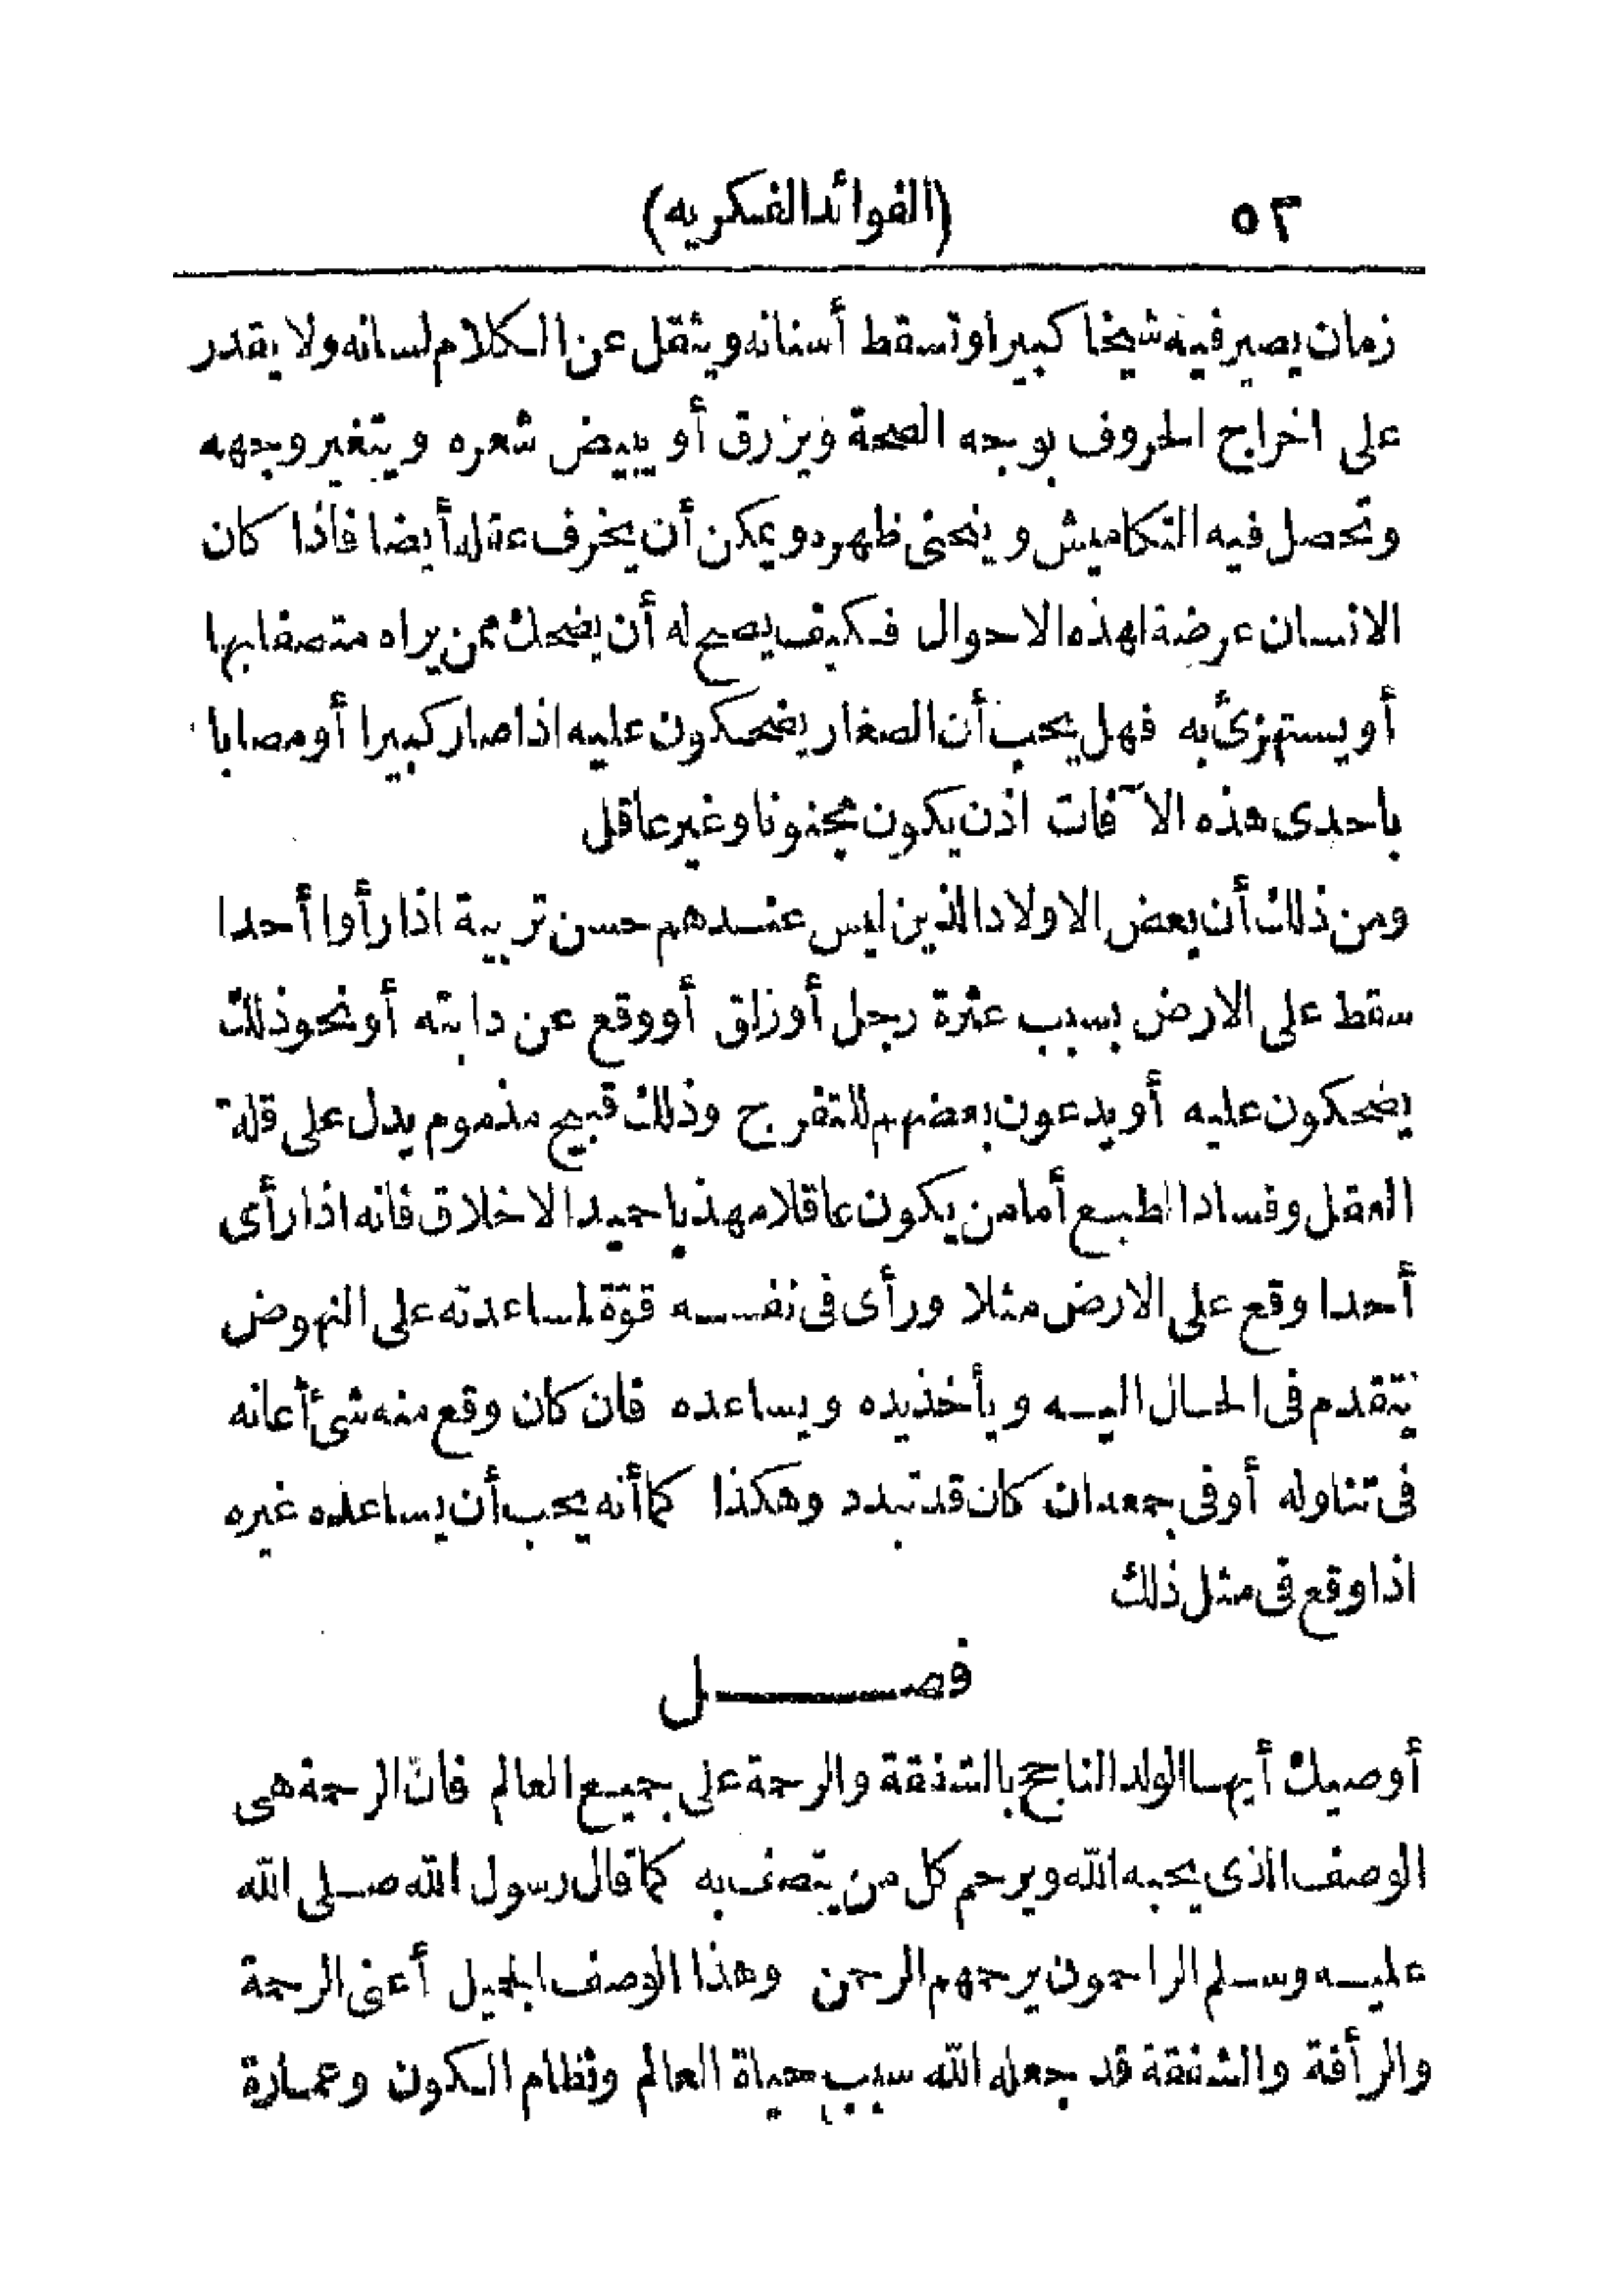 ٥٢ (الفوائد الفكريه)
زمان يصير فيه شيخا كبيرا وتسقط أسنانه ويثقل عن الكلام لسانه ولا يقدر
على اخراج الحروف بوجه الصحة ويزرق أو يبيض شعره ويتغير وجهه
وتحصل فيه التكاميش وينحنى ظهره ويمكن أن يخرف عقله أيضا فاذا كان
الانسان عرضة لهذه الاحوال فكيف يصح له أن يضحك ممن يراه متصفا بها
أو يستهزئ به فهل يحب أن الصغار يضحكون عليه اذا صار كبيرا أو مصابا
باحدى هذه الآفات اذن يكون مجنونا وغير عاقل
ومن ذلك أن بعض الاولاد الذين ليس عندهم حسن تربية اذا رأوا أحدا
سقط على الارض بسبب عثرة رجل أو زلق أو وقع عن دابته أو نحو ذلك
يضحكون عليه أو يدعون بعضهم للتفرج وذلك قبيح مذموم يدل على قلة
العقل وفساد الطبع أما من يكون عاقلا مهذبا حميد الاخلاق فانه اذا رأى
أحدا وقع على الارض مثلا ورأى فى نفسه قوّة لمساعدته على النهوض
يتقدم فى الحال اليه ويأخذ يده ويساعده فان كان وقع منه شئ أعانه
فى تناوله أو فى جمعه ان كان قد تبدد وهكذا كما أنه يحب أن يساعده غيره
اذا وقع فى مثل ذلك
فصل
أوصيك أيها الولد الناجح بالشفقة والرحمة على جميع العالم فانّ الرحمة هى
الوصف الذى يحبه الله ويرحم كل من يتصف به كما قال رسول الله صلى الله
عليه وسلم الراحمون يرحمهم الرحمن وهذا الوصف الجميل أعنى الرحمة
والرأفة والشفقة قد جعله الله سبب حياة العالم ونظام الكون وعمارة